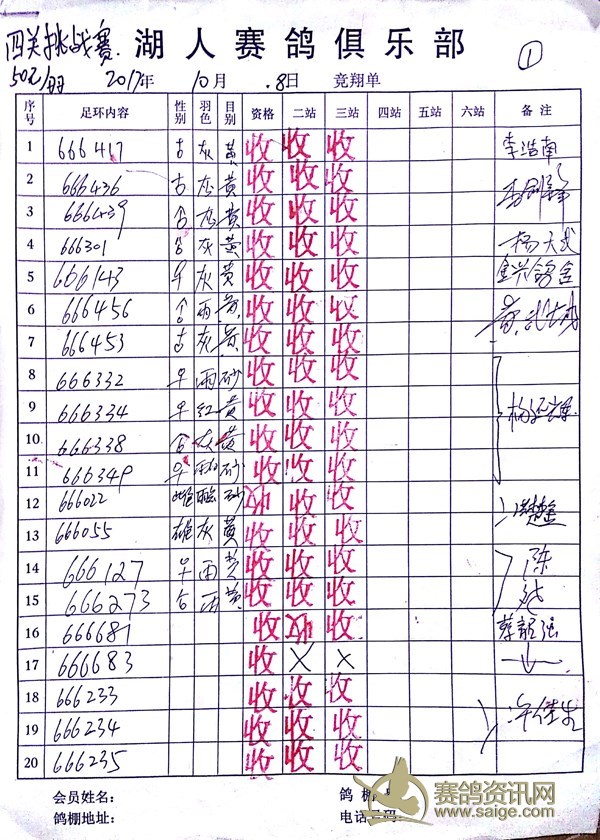 四关挑战赛. 湖人赛鸽俱乐部 ①
50元/羽 2017年 10月 .8日 竞翔单
序号 足环内容 性别 羽色 目别 资格 二站 三站 四站 五站 六站 备注
1 666417 灰 黄 收 收 收 李浩南
2 666436 灰 黄 收 收 收
3 666439 灰 黄 收 收 收
4 666301 灰 黄 收 收 收 杨天武
5 666143 灰 黄 收 收 收 金兴鸽舍
6 666456 雨 黄 收 收 收
7 666453 灰 黄 收 收 收
8 666332 雨 砂 收 收 收
9 666334 红 黄 收 收 收
10 666338 灰 黄 收 收 收
11 666349 雨 砂 收 收 收
12 666022 雌 砂 收 收 收
13 666055 雄 灰 黄 收 收 收
14 666127 雨 黄 收 收 收 陈
15 666273 雨 黄 收 收 收
16 666681 收 收 收
17 666683 收 × ×
18 666233 收 收 收
19 666234 收 收 收
20 666235 收 收 收
会员姓名: 鸽棚号:
鸽棚地址: 电话号码:
赛鸽资讯网
www.saige.com